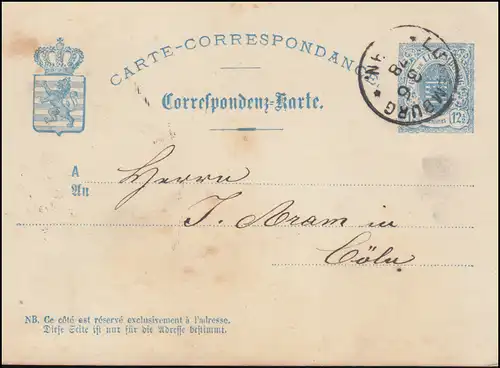 CARTE-CORRESPONDANCE
Correspondenz-Karte.
LUXEMBURG
12½
A
An
Herrn
J. Aram in
Cöln
NB. Ce côté est réservé exclusivement à l'adresse.
Diese Seite ist nur für die Adresse bestimmt.